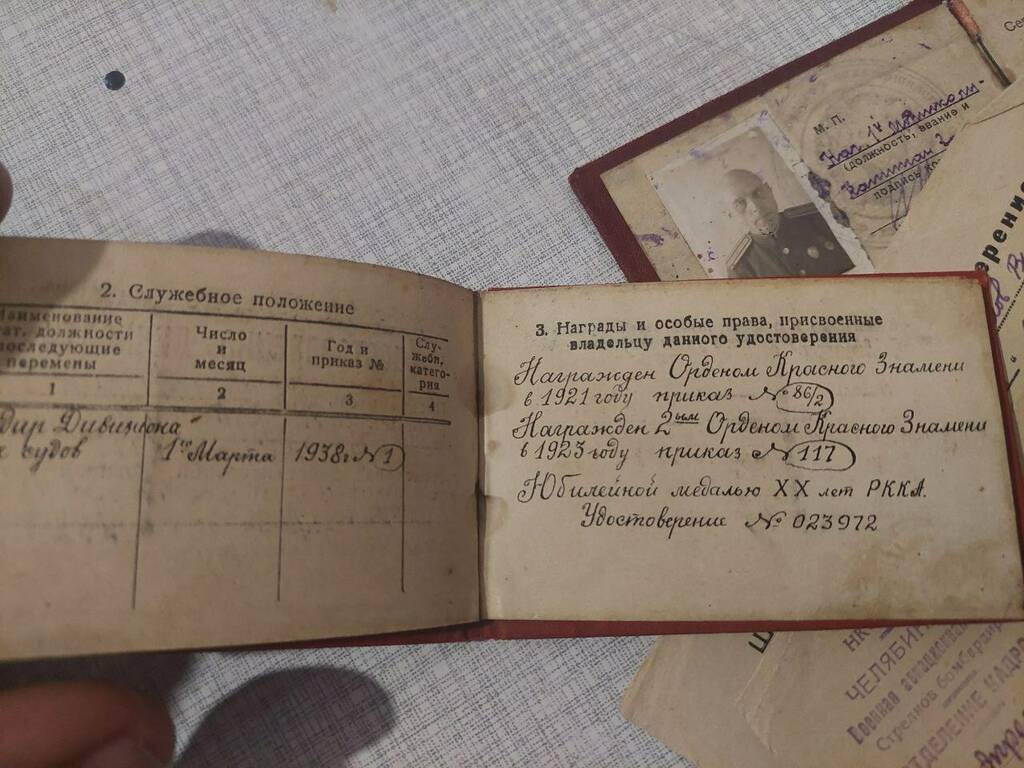 2. Служебное положение
Наименование
тат. должности
последующие
перемены
Число
и
месяц
Год и
приказ №
Слу-
жебн.
катего-
рия
1
2
3
4
Дивизиона
судов
1го Марта
1938г №1
3. Награды и особые права, присвоенные
владельцу данного удостоверения
Награжден Орденом Красного Знамени
в 1921 году приказ № 86/2
Награжден 2ым Орденом Красного Знамени
в 1923 году приказ № 117
Юбилейной медалью XX лет РККА.
Удостоверение № 023972
М. П.
(должность, звание и
Капитан
подпись
НК
ЧЕЛЯБИН
Военная авиацион
Стрелков бомбардир
ОТДЕЛЕНИЕ КАДР